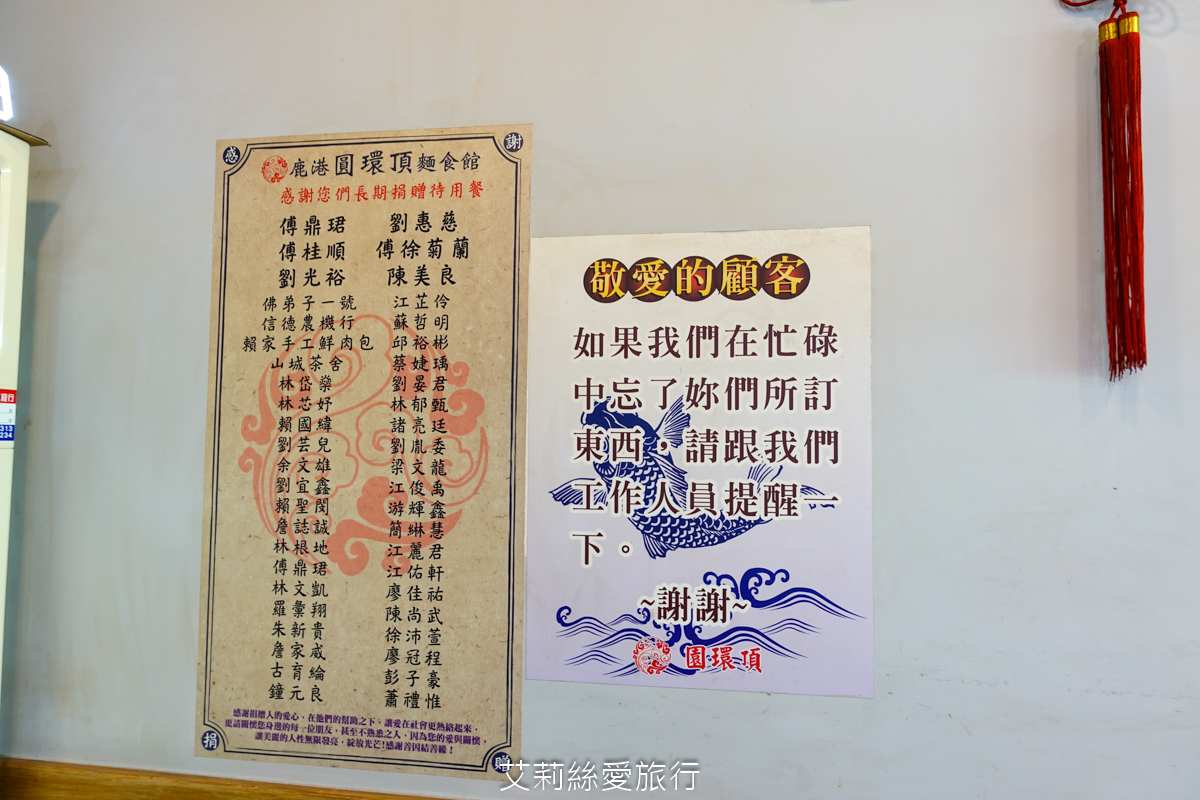 感 謝
鹿港圓環頂麵食館
感謝您們長期捐贈待用餐
傅鼎珺 劉惠慈
傅桂順 傅徐菊蘭
劉光裕 陳美良
佛弟子一號 江芷伶
信德農機行 蘇哲明
賴家手工鮮肉包 邱裕彬
山城茶舍 蔡婕瑀
林岱燊 劉晏君
林芯妤 林郁甄
賴國緯 諸亮廷
劉芸兒 劉胤委
余文雄 梁文龍
劉宜鑫 江俊禹
賴聖閔 游輝鑫
詹誌誠 簡綝慧
林根地 江麗君
傅鼎珺 江佑軒
林文凱 廖佳祐
羅彙翔 陳尚武
朱新貴 徐沛萱
詹家威 廖冠程
古育綸 彭子豪
鐘元良 蕭禮惟
感謝捐贈人的愛心，在他們的幫助之下，讓愛在社會更熱絡起來，
更請關懷您身邊的每一位朋友，甚至不熟悉之人，因為您的愛與關懷，
讓美麗的人性無限發亮，綻放光芒!感謝善因結善緣！
捐 贈
敬愛的顧客
如果我們在忙碌
中忘了妳們所訂
東西，請跟我們
工作人員提醒一
下。
~謝謝~
圓環頂
313
234
艾莉絲愛旅行